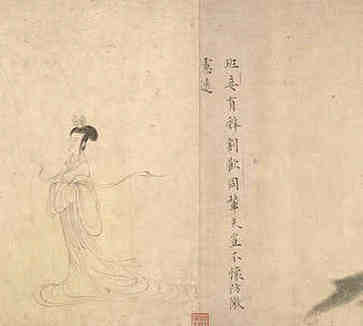 班妾有辭割歡同輦夫豈不懷防微
慮遠